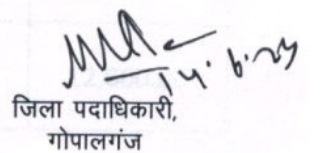 14.6.23
जिला पदाधिकारी,
गोपालगंज